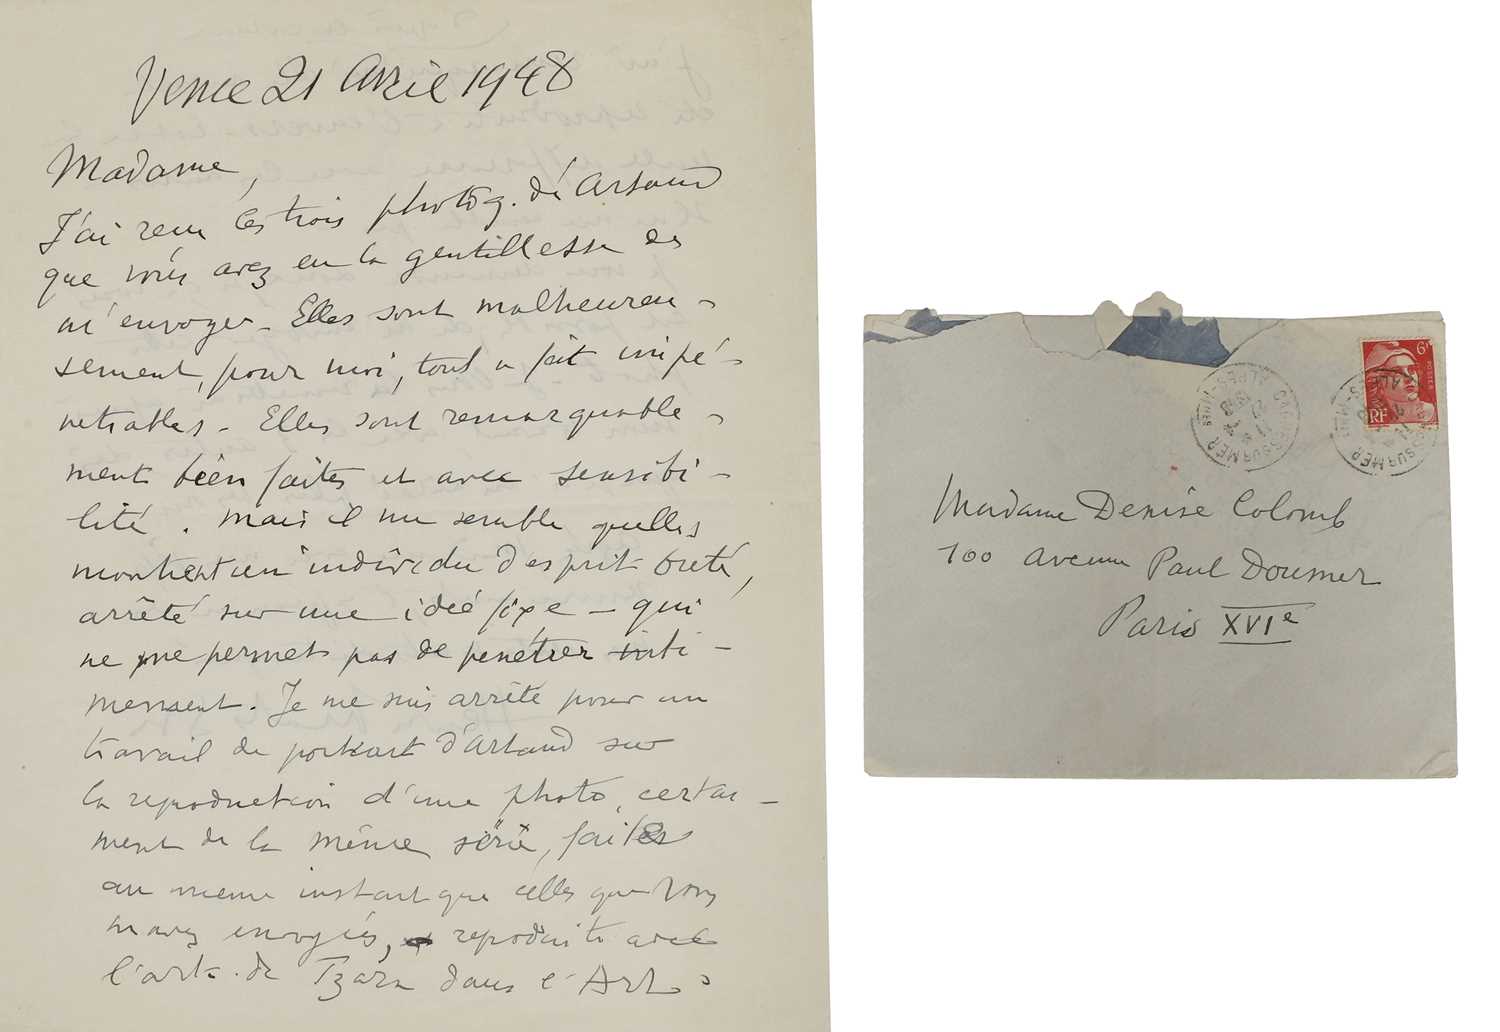 Vence 21 Avril 1948
Madame,
J'ai reçu les trois photog. de Artaud
que vous avez eu la gentillesse de
m'envoyer – Elles sont malheureu -
sement, pour moi, tout a fait impé -
netrables – Elles sont remarquable -
ment bien faites et avec sensibi -
lité. Mais il me semble quelles
montrent un individu d'esprit buté,
arrêté sur une idée fixe – qui
ne me permet pas de penétrer inti -
mement. Je me suis arrêté pour un
travail de portrait d'Artaud sur
la reproduction d'une photo, certai -
ment de la même série, faites
au même instant que celles que vous
m'avez envoyées, reproduite avec
l'art. de Tzara dans l'Art.
Madame Denise Colomb
100 avenue Paul Doumer
Paris XVIe
6F
POSTES
RF
CAGNES-SUR-MER
ALPES-MMES